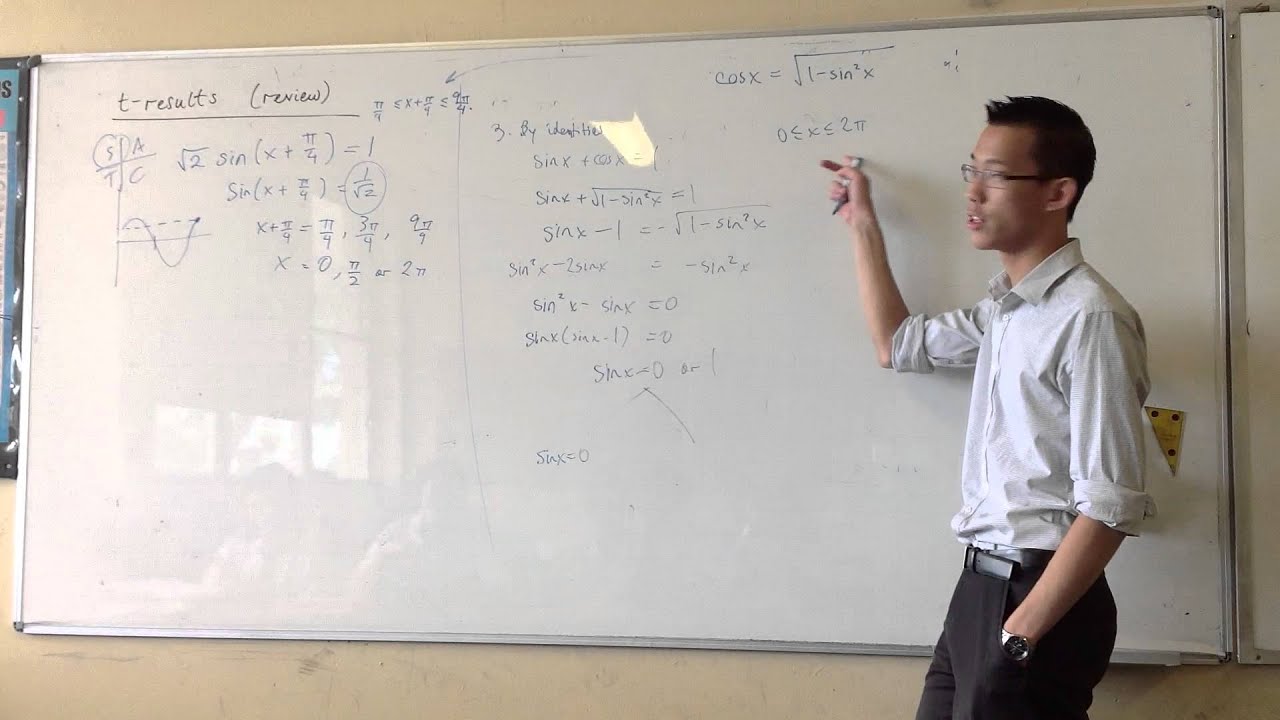 t-results (review)
π/4 ≤ x+π/4 ≤ 9π/4.
S A
T C
√2 sin(x + π/4) = 1
sin(x + π/4) = 1/√2
x+π/4 = π/4, 3π/4, 9π/4
x = 0, π/2 or 2π
3. By identities
sinx + cosx = 1
sinx + √(1-sin²x) = 1
sinx - 1 = -√(1-sin²x)
sin²x - 2sinx = -sin²x
sin²x - sinx = 0
sinx(sinx-1) = 0
sinx = 0 or 1
sinx=0
cosx = √(1-sin²x)
0 ≤ x ≤ 2π